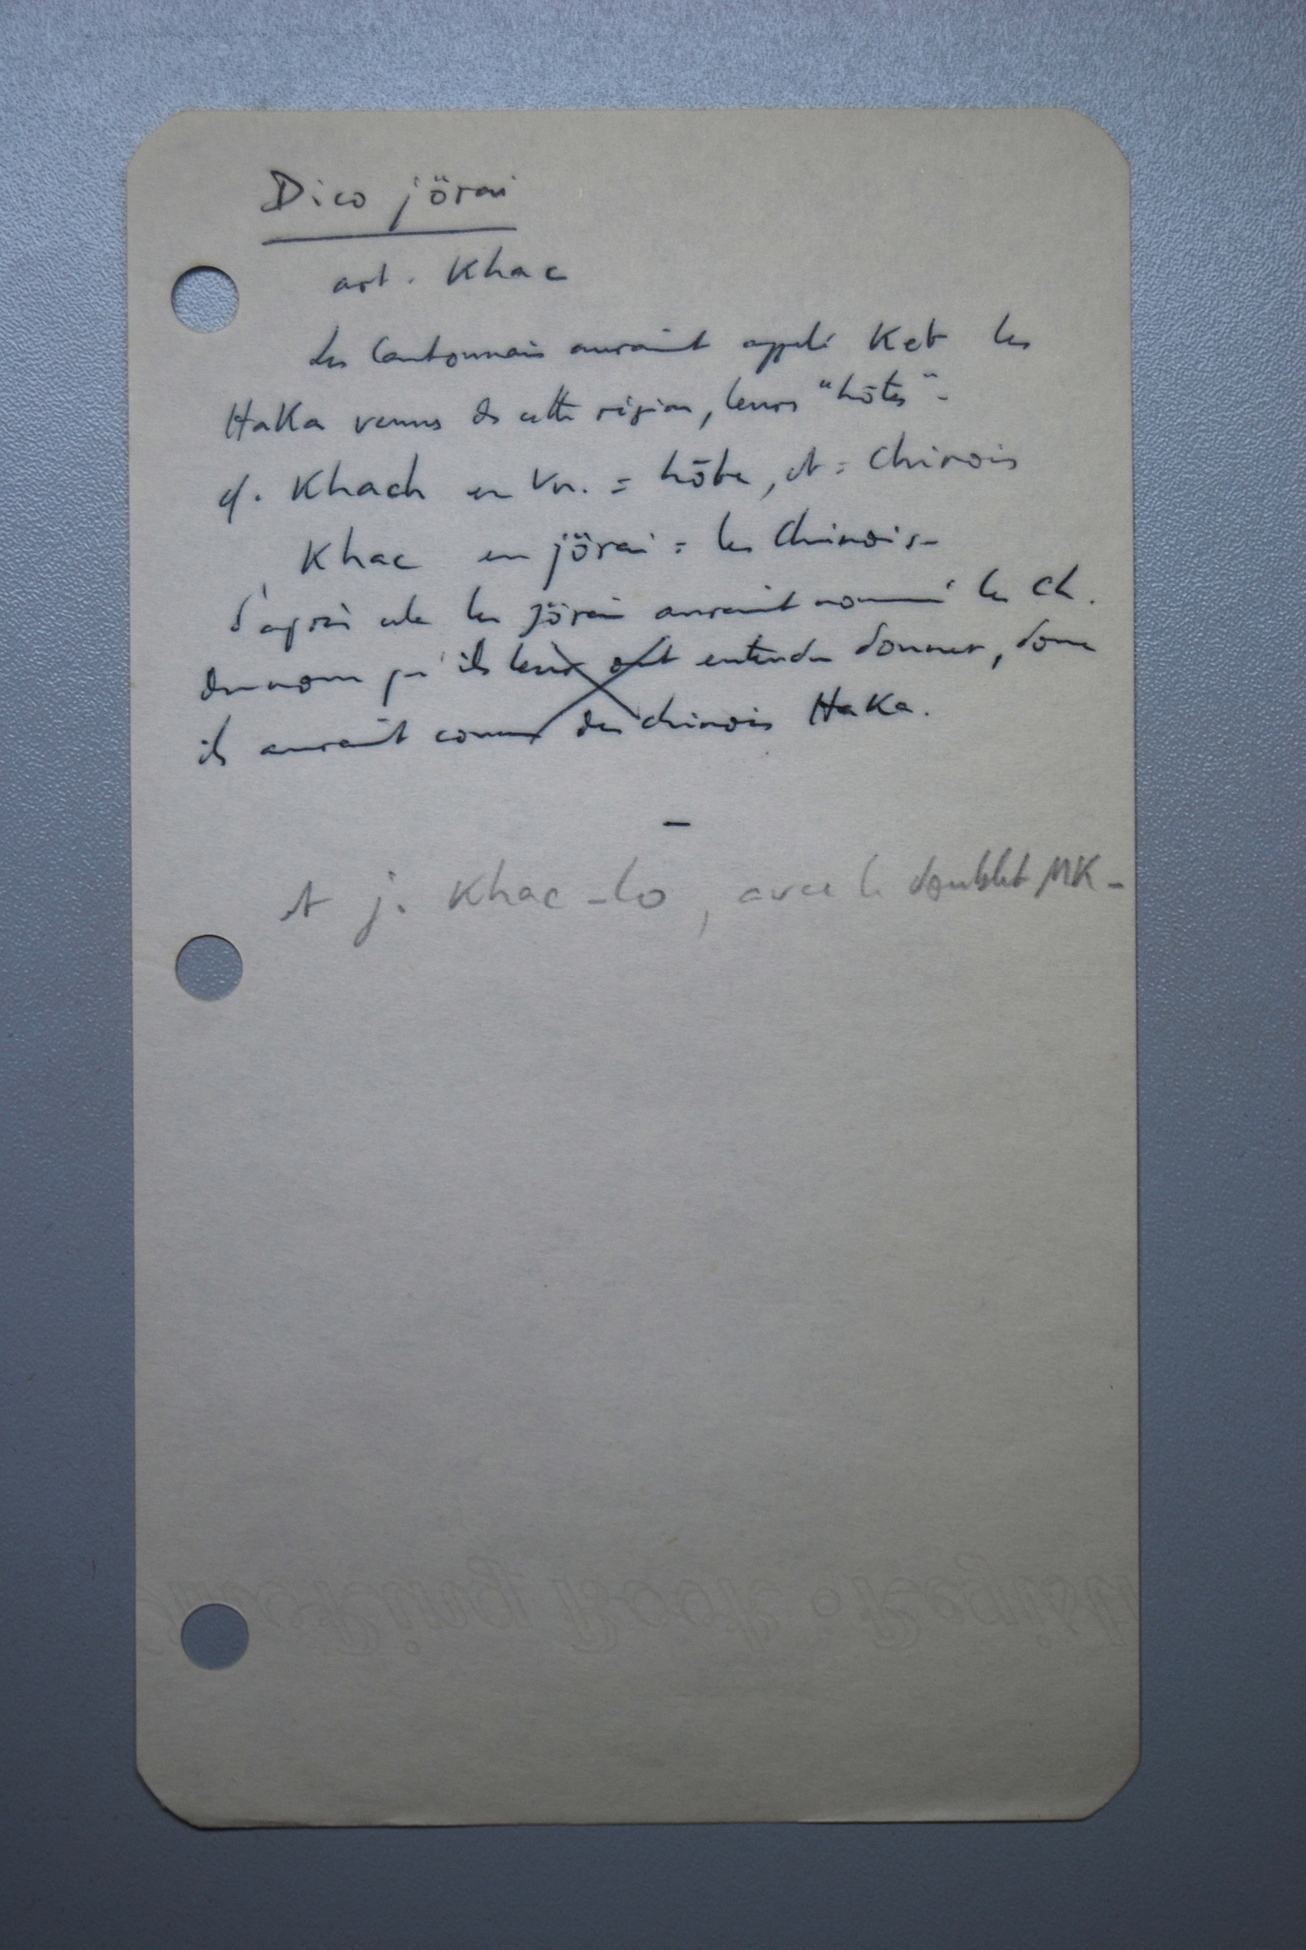 Dico jörai
art. Khac
les Cantonnais auraient appelé Ket les
HaKa venus ds cette région, leurs "hôtes".
cf. Khach en Vn. = hôte, et = Chinois
Khac en jörai = les Chinois.
d'après cela les Jörai auraient nommé les Ch.
du nom qu'ils leur ont entendu donner, donc
ils auraient connu des chinois HaKa.
–
et j. Khac-lo, avec le doublet MK.
Ring Book • Regist